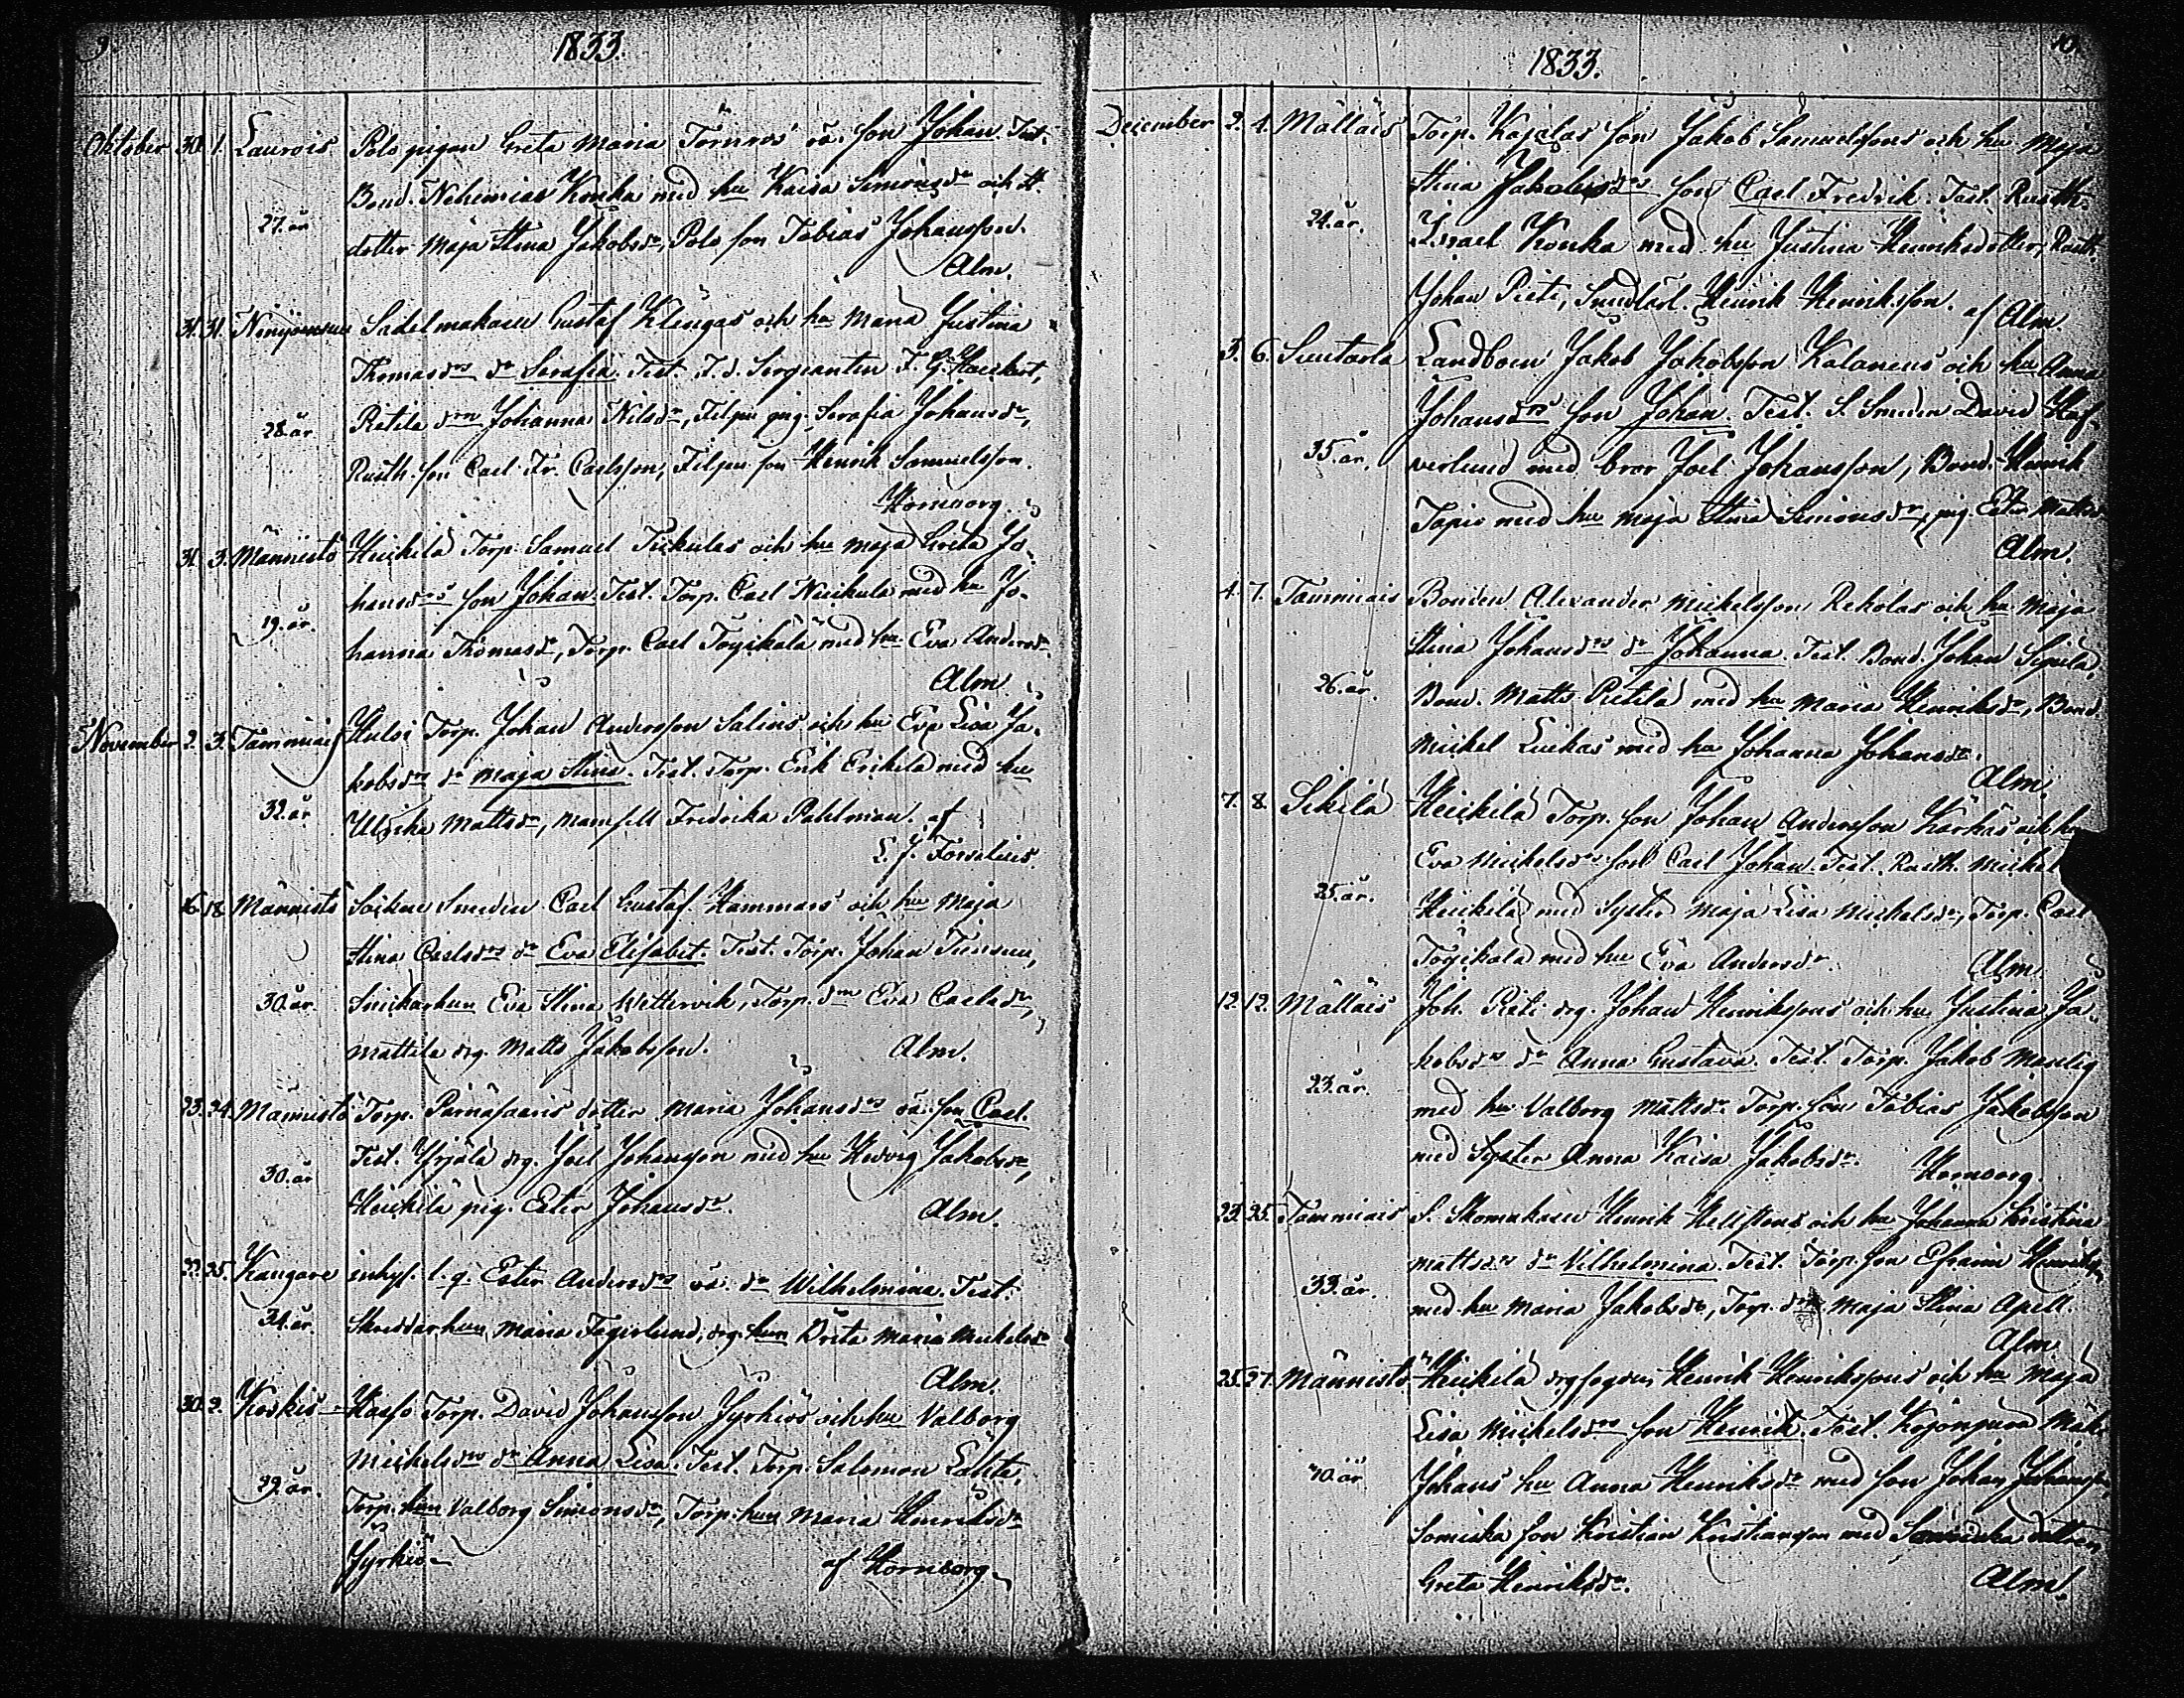 9.
1833.
Oktober 30. 1. Laurois Polo pigan Greta Maria Törnros oä. son Johan. Test.
Bond. Nehemias Konka med hu Kaisa Simonsdr och
27. år
dotter Maja Stina Jakobsdr, Polo son Tobias Johansson.
Alm.
31. 31. Sadelmakaren Gustaf Klingas och hu Maria Justina
Thomasdrs dr Serafia. Test. F. d. Sergeanten F. G.
28. år
Pietila drn Johanna Nilsdr, Filpu pig. Serafia Johansdr,
Rusth. son Carl Fr. Carlsson, Filpu son Henrik Samuelsson.
Hornborg.
31. 3. Männistö Heikilä Torp. Samuel och hu Maja Greta Jo-
hansdrs son Johan. Test. Torp. Carl med hu Jo-
19. år.
hanna Thomasdr, Torp. Carl Töyikälä med hu Eva Andersdr.
Alm
November 2. 3. Tammiais Torp. Johan Andersson Salins och hu Eva Lisa Ja-
kobsdrs dr Maja Stina. Test. Torp. Erik Erikilä med hu
32. år
Ulrika Mattsdr, Mamsell Fredrika Pahlman. af
L. J. Forselius.
16. 18. Männistö Socken Smeden Carl Gustaf Hammars och hu Maja
Stina Carlsdrs dr Eva Elisabet. Test. Torp. Johan
30. år.
Snickarhun Eva Stina Wettervik, Torp. drn Eva Carlsdr,
Mattila drg. Matts Jakobsson. Alm.
23. 24. Männistö Torp. dotter Maria Johansdrs oä. son Carl.
Test. Yrjälä drg. Joel Johansson med hu Hedvig Jakobsdr,
30. år
Heikilä pig. Ester Johansdr. Alm.
22. 25. Kangare inhys. l. q. Ester Andersdrs oä. dr Wilhelmina. Test.
34. år.
Skreddarhun Maria Fagerlund, drg. hun Brita Maria Mickelsdr
Alm.
30. 2. Koskis Torp. David Johansson Jyrkiös och hu Valborg
Mickelsdrs dr Anna Lisa. Test. Torp. Salomon
29. år.
Torp. hun Valborg Simonsdr, Torp. hun Maria Henriksdr
Jyrkiö. af Hornborg.
10.
1833.
December 2. 4. Mälläis Torp. Kajalas son Jakob Samuelssons och hu Maja
Stina Jakobsdrs son Carl Fredrik. Test. Rusth.
24. år.
Israel Konka med hu Justina Henriksdotter, Rusth.
Johan Pieti, Smedlärl. Henrik Henriksson. af Alm.
3. 6. Suutarla Landboen Jakob Jakobsson Kalanens och hu Anna
Johansdrs son Johan. Test. S. Smeden David Haf-
35. år.
verlund med bror Joel Johansson, Bond. Henrik
Tapio med hu Maja Stina Simonsdr, pig. Ester
Alm.
4. 7. Tammiais Bonden Alexander Mickelsson Rekolas och hu Maja
Stina Johansdrs dr Johanna. Test. Bond. Johan Sipilä,
26. år.
Bond. Matts Pietilä med hu Maria Henriksdr, Bond.
Mickel med hu Johanna Johansdr.
Alm.
7. 8. Sikilä Heikilä Torp. son Johan Andersson Kärkäs och hu
Eva Mickelsdrs son Carl Johan. Test. Rusth. Mickel
25. år.
Heikilä med Syster Maja Lisa Mickelsdr, Torp. Carl
Töyikälä med hu Eva Andersdr. Alm
12. 12. Mälläis Joh. Pieti drg. Johan Henrikssons och hu Justina Ja-
kobsdrs dr Anna Gustava. Test. Torp. Jakob
23. år.
med hu Valborg Mattsdr. Torp. son Tobias Jakobsson
med Syster Anna Kaisa Jakobsdr. Hornborg.
23. 25. Tammiais S. Skomakaren Henrik och hu Johanna Kristina
Mattsdrs dr Vilhelmina. Test. Torp. son Efraim Henriksson
33. år.
med hu Maria Jakobsdr, Torp. drn Maja Stina Apell.
Alm
25. 27. Männistö Heikilä drgfogden Henrik Henrikssons och hu Maja
Lisa Mickelsdrs son Henrik. Test.
40. år
Johans hu Anna Henriksdr med son Johan Johansson
son Kristian Kristiansson med
Greta Henriksdr. Alm.